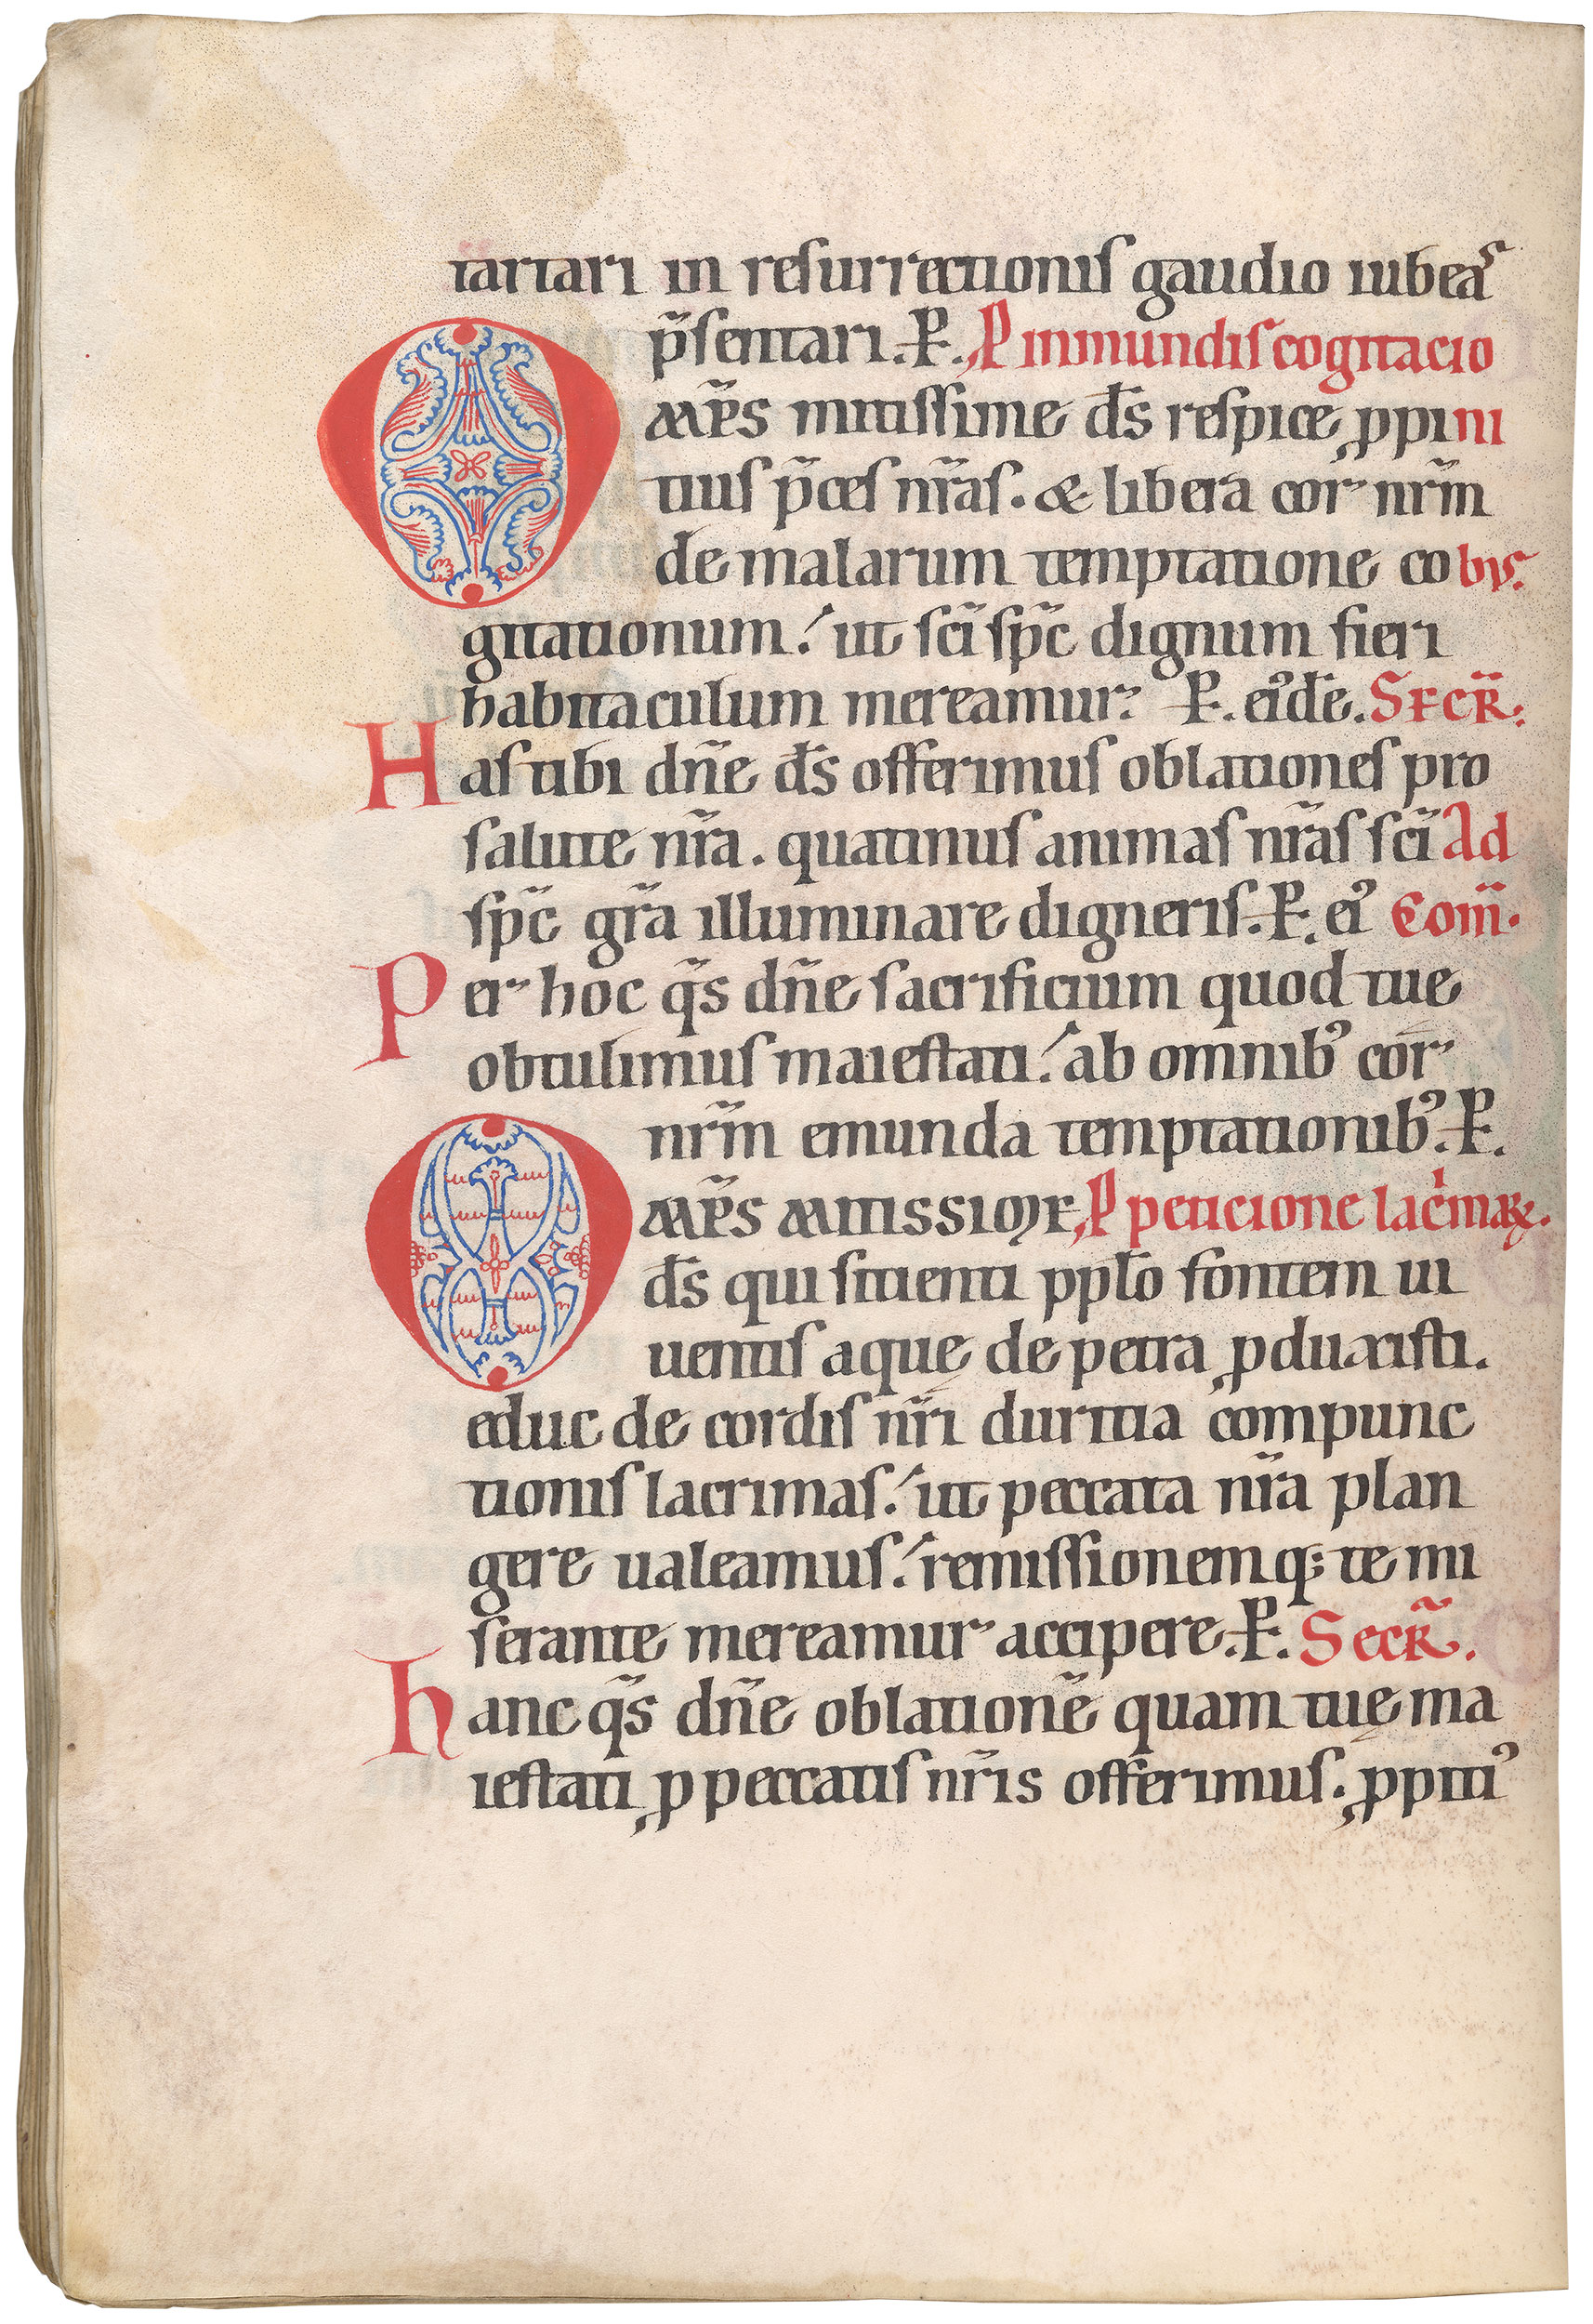 tartari in resurrectionis gaudio iubeas
p̃sentari. P. P inmundis cogitacio
Om̃ps mitissime d̃s respice ppi ni
tius p̃ces nr̃as. & libera cor nr̃m
de malarum temptatione co bus.
gitationum. ut sc̃i sp̃c dignum fieri
habitaculum mereamur. P. ei'dẽ. Secr̃.
Has tibi dñe d̃s offerimus oblationes pro
salute nr̃a. quatinus animas nr̃as sc̃i Ad
sp̃c gr̃a illuminare digneris. P. ei' Com̃.
Per hoc q̃s dñe sacrificium quod tue
obtulimus maiestati. ab omnib' cor
nr̃m emunda temptationib'. P.
Om̃ps mitissime P peticione lac̓maꝝ.
d̃s qui sitienti pplõ fontem ui
uentis aque de petra ꝓduxisti.
educ de cordis nr̃i duritia compunc
tionis lacrimas. ut peccata nr̃a plan
gere ualeamus. remissionemq; te mi
serante mereamur accipere. P. Secr̃.
hanc q̃s dñe oblationẽ quam tuę ma
iestati ꝓ peccatis nr̃is offerimus. ꝓpiti'